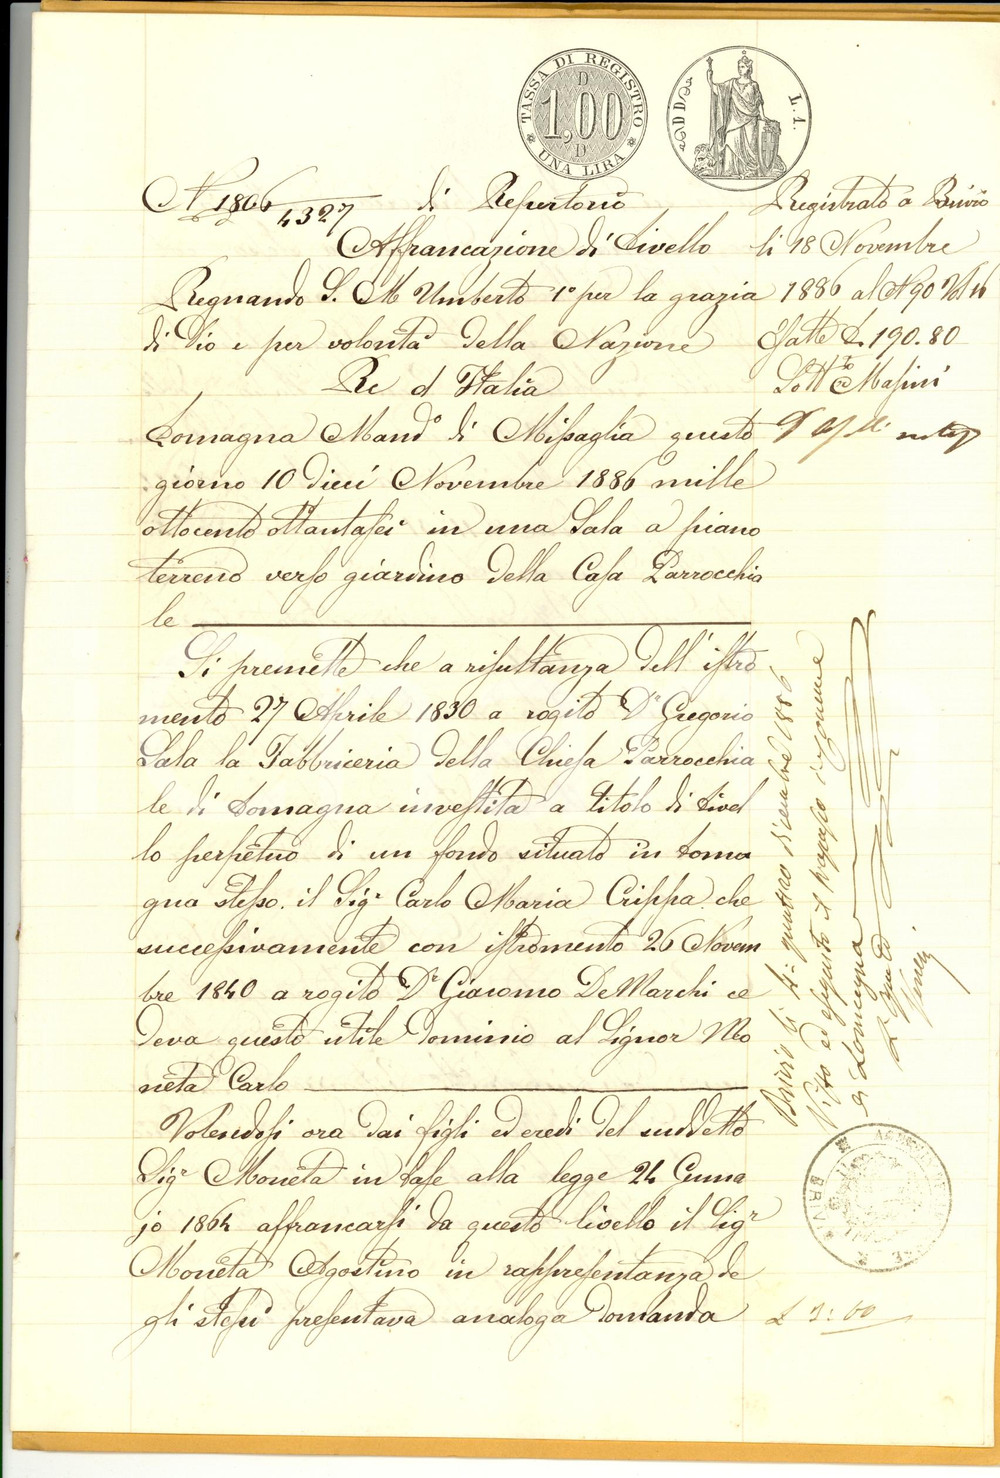 TASSA DI REGISTRO
D
1,00
D
UNA LIRA
L. 1.
N 1806/4327 di Repertorio
Affrancazione di Livello
Regnando S. M Umberto 1° per la grazia
di Dio e per volontà della Nazione
Re d'Italia
Lomagna Mand.° di Missaglia questo
giorno 10 dieci Novembre 1886 mille
ottocento ottantasei in una Sala a piano
terreno verso giardino della Casa Parrocchia
le
Si premette che a risultanza dell'istro
mento 27 Aprile 1830 a rogito Dr Gregorio
Sala la Fabbriceria della Chiesa Parrocchia
le di Lomagna investita a titolo di livel
lo perpetuo di un fondo situato in Loma
gna stesso. il Sigr Carlo Maria Crippa che
successivamente con istromento 26 Novem
bre 1840 a rogito Dr Giacomo DeMarchi ce
deva questo utile dominio al Signor Mo
neta Carlo
Volendosi ora dai figli ed eredi del suddetto
Sigr Moneta in base alla legge 24 Genna
jo 1864 affrancarsi da questo livello il Sigr
Moneta Agostino in rappresentanza de
gli stessi presentava analoga domanda
Registrato a Brivio
li 18 Novembre
1886 al N 90 Vol 16
Esatte L 190.80
Sott.to Masini
Brivio li 4 quattro Dicembre 1886
Visto ed eseguito il trapasso in Comune
di Lomagna
BRIVIO
£ 3:00